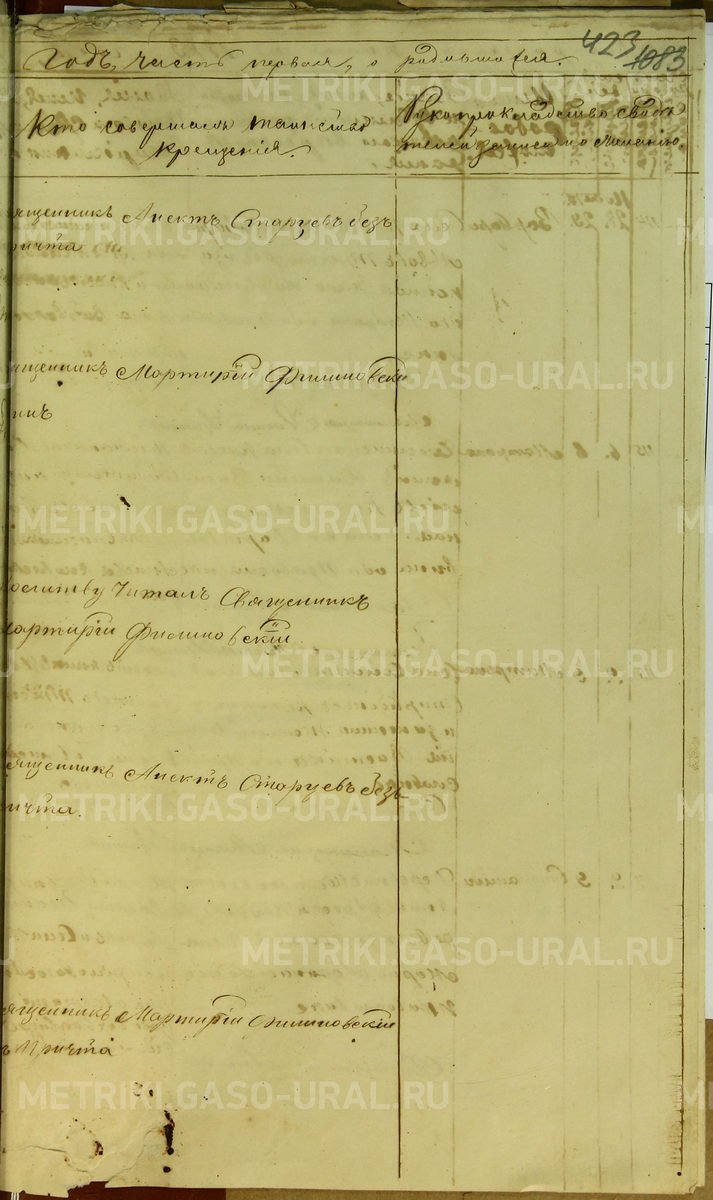 423
1083
Годъ, часть первая, о родившихся.
Кто совершалъ таинство
крещенія.
Рукоприкладство свидѣ
телей записи по желанію.
ященникъ Анектъ Старцевъ безъ
ричта
ященникъ Мартирій Филиповскій
Молитву читалъ Священникъ
Мартирій Филиповскій
священникъ Анектъ Старцевъ безъ
ричта.
ященникъ Мартирій Филиповскій
ъ причта
METRIKI.GASO-URAL.RU